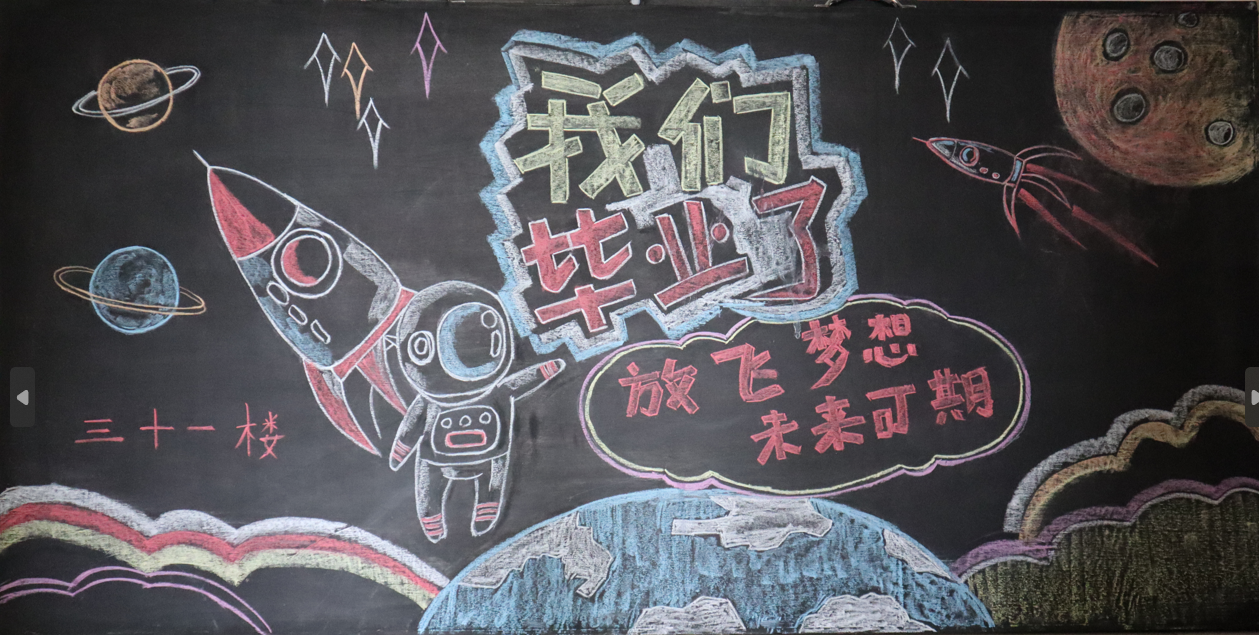 我们
毕业了
放飞梦想
未来可期
三十一楼